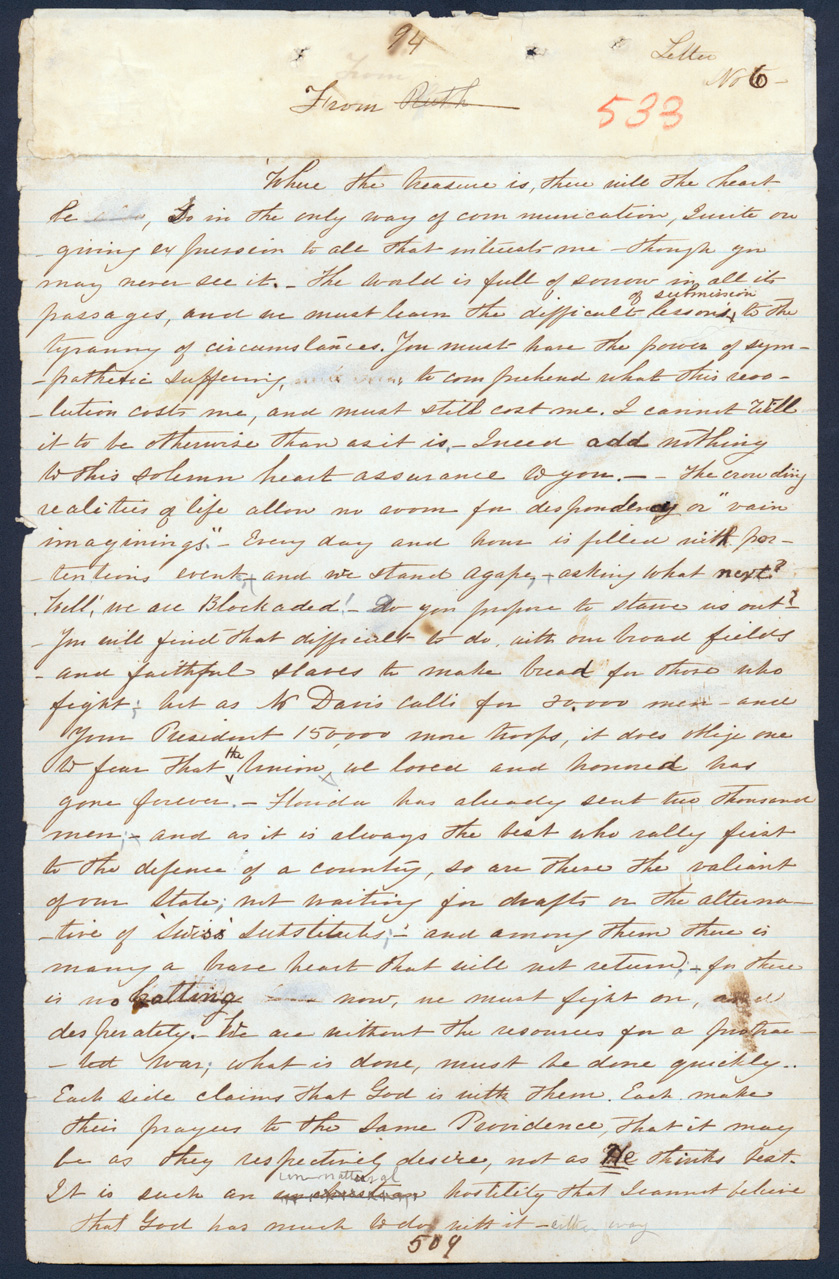 94
Letter
No 6 -
From Ruth
533
Where the treasure is, there will the heart
be, So in the only way of communication, I write on
giving expression to all that interests me - though you
may never see it. - The world is full of sorrow in all its
of submission
passages, and we must learn the difficult lessons to the
tyranny of circumstances. You must have the power of sym-
-pathetic suffering, to comprehend what this reso-
-lution costs me, and must still cost me. I cannot will
it to be otherwise than as it is, - I need add nothing
to this solemn heart assurance to you. - - The crowding
realities of life allow no room for despondency or "vain
imaginings." - Every day and hour is filled with por-
-tentious events, and we stand agape, - asking what next?
Well, we are Blockaded! - Do you propose to starve us out?
You will find that difficult to do, with our broad fields
- and faithful slaves to make bread for those who
fight; but as Mr Davis calls for 30,000 men - and
Your President 150,000 more troops, it does oblige one
to fear that the Union, we loved and honored has
gone forever. - Florida has already sent two thousand
men; - and as it is always the best who rally first
to the defence of a country, so are these the valiant
of our State; not waiting for drafts or the alterna-
-tive of 'Swiss' substitutes; - and among them there is
many a brave heart that will not return, - for there
is no halting now, we must fight on, and
desperately. - We are without the resources for a protrac-
-ted war; what is done, must be done quickly..
Each side claims that God is with them. Each make
their prayers to the same Providence, that it may
be as they respectively desire, not as He thinks best.
unnatural
It is such an hostility that I cannot believe
that God has much to do with it - either way
509